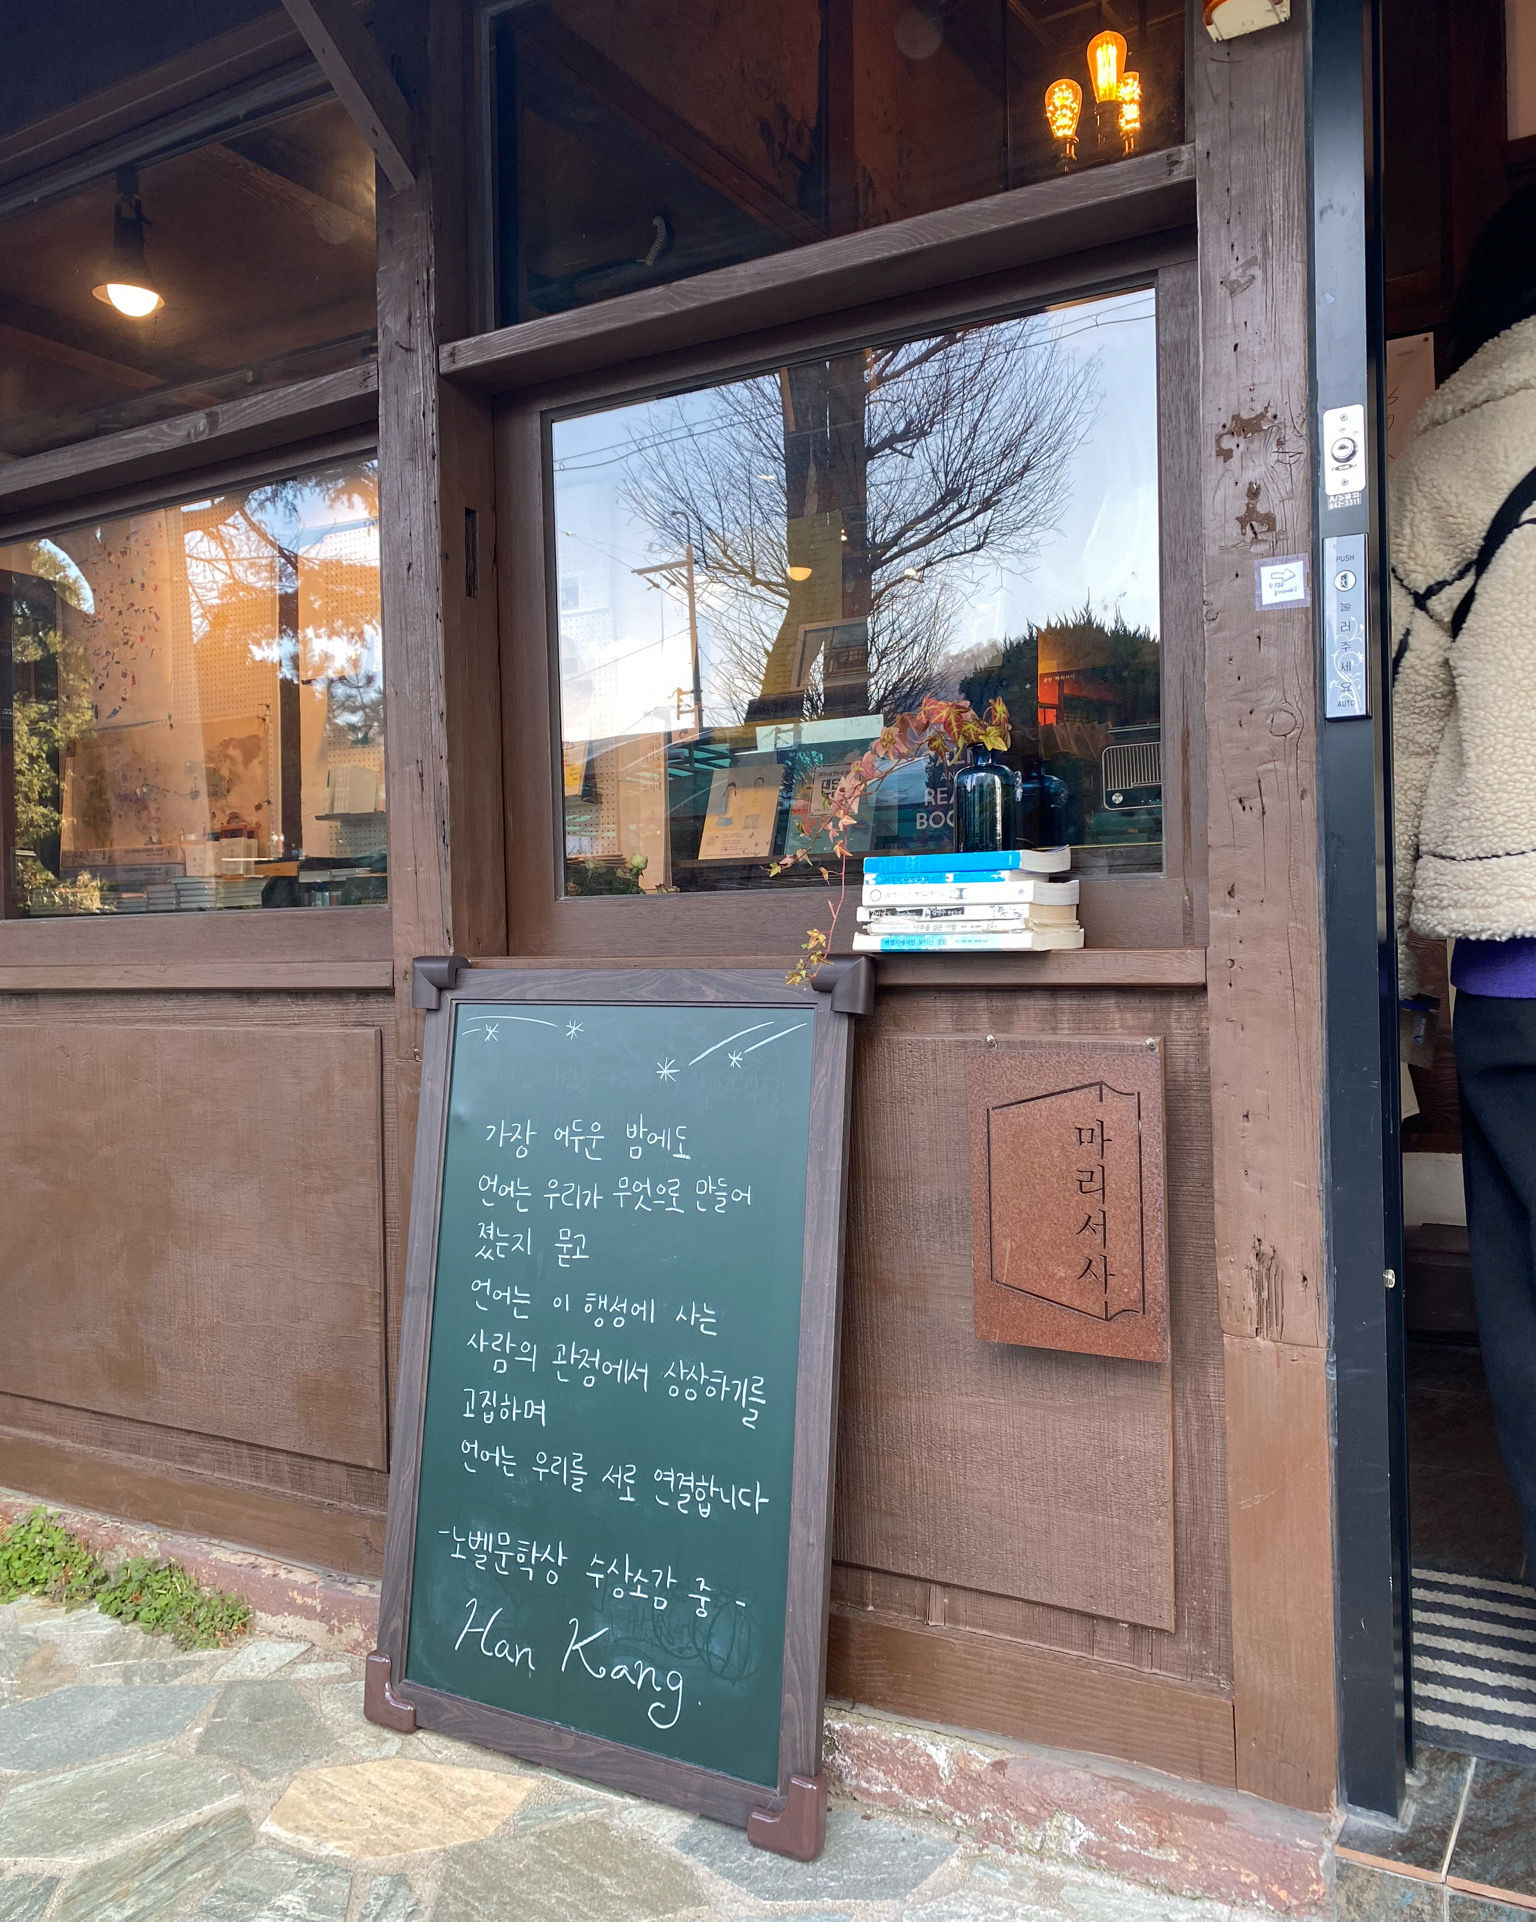 가장 어두운 밤에도
언어는 우리가 무엇으로 만들어
졌는지 묻고
언어는 이 행성에 사는
사람의 관점에서 상상하기를
고집하며
언어는 우리를 서로 연결합니다
-노벨문학상 수상소감 중-
Han Kang.
마리서사
PUSH
눌러주세요
AUTO
442-3311
대답
AN
REA
BOO